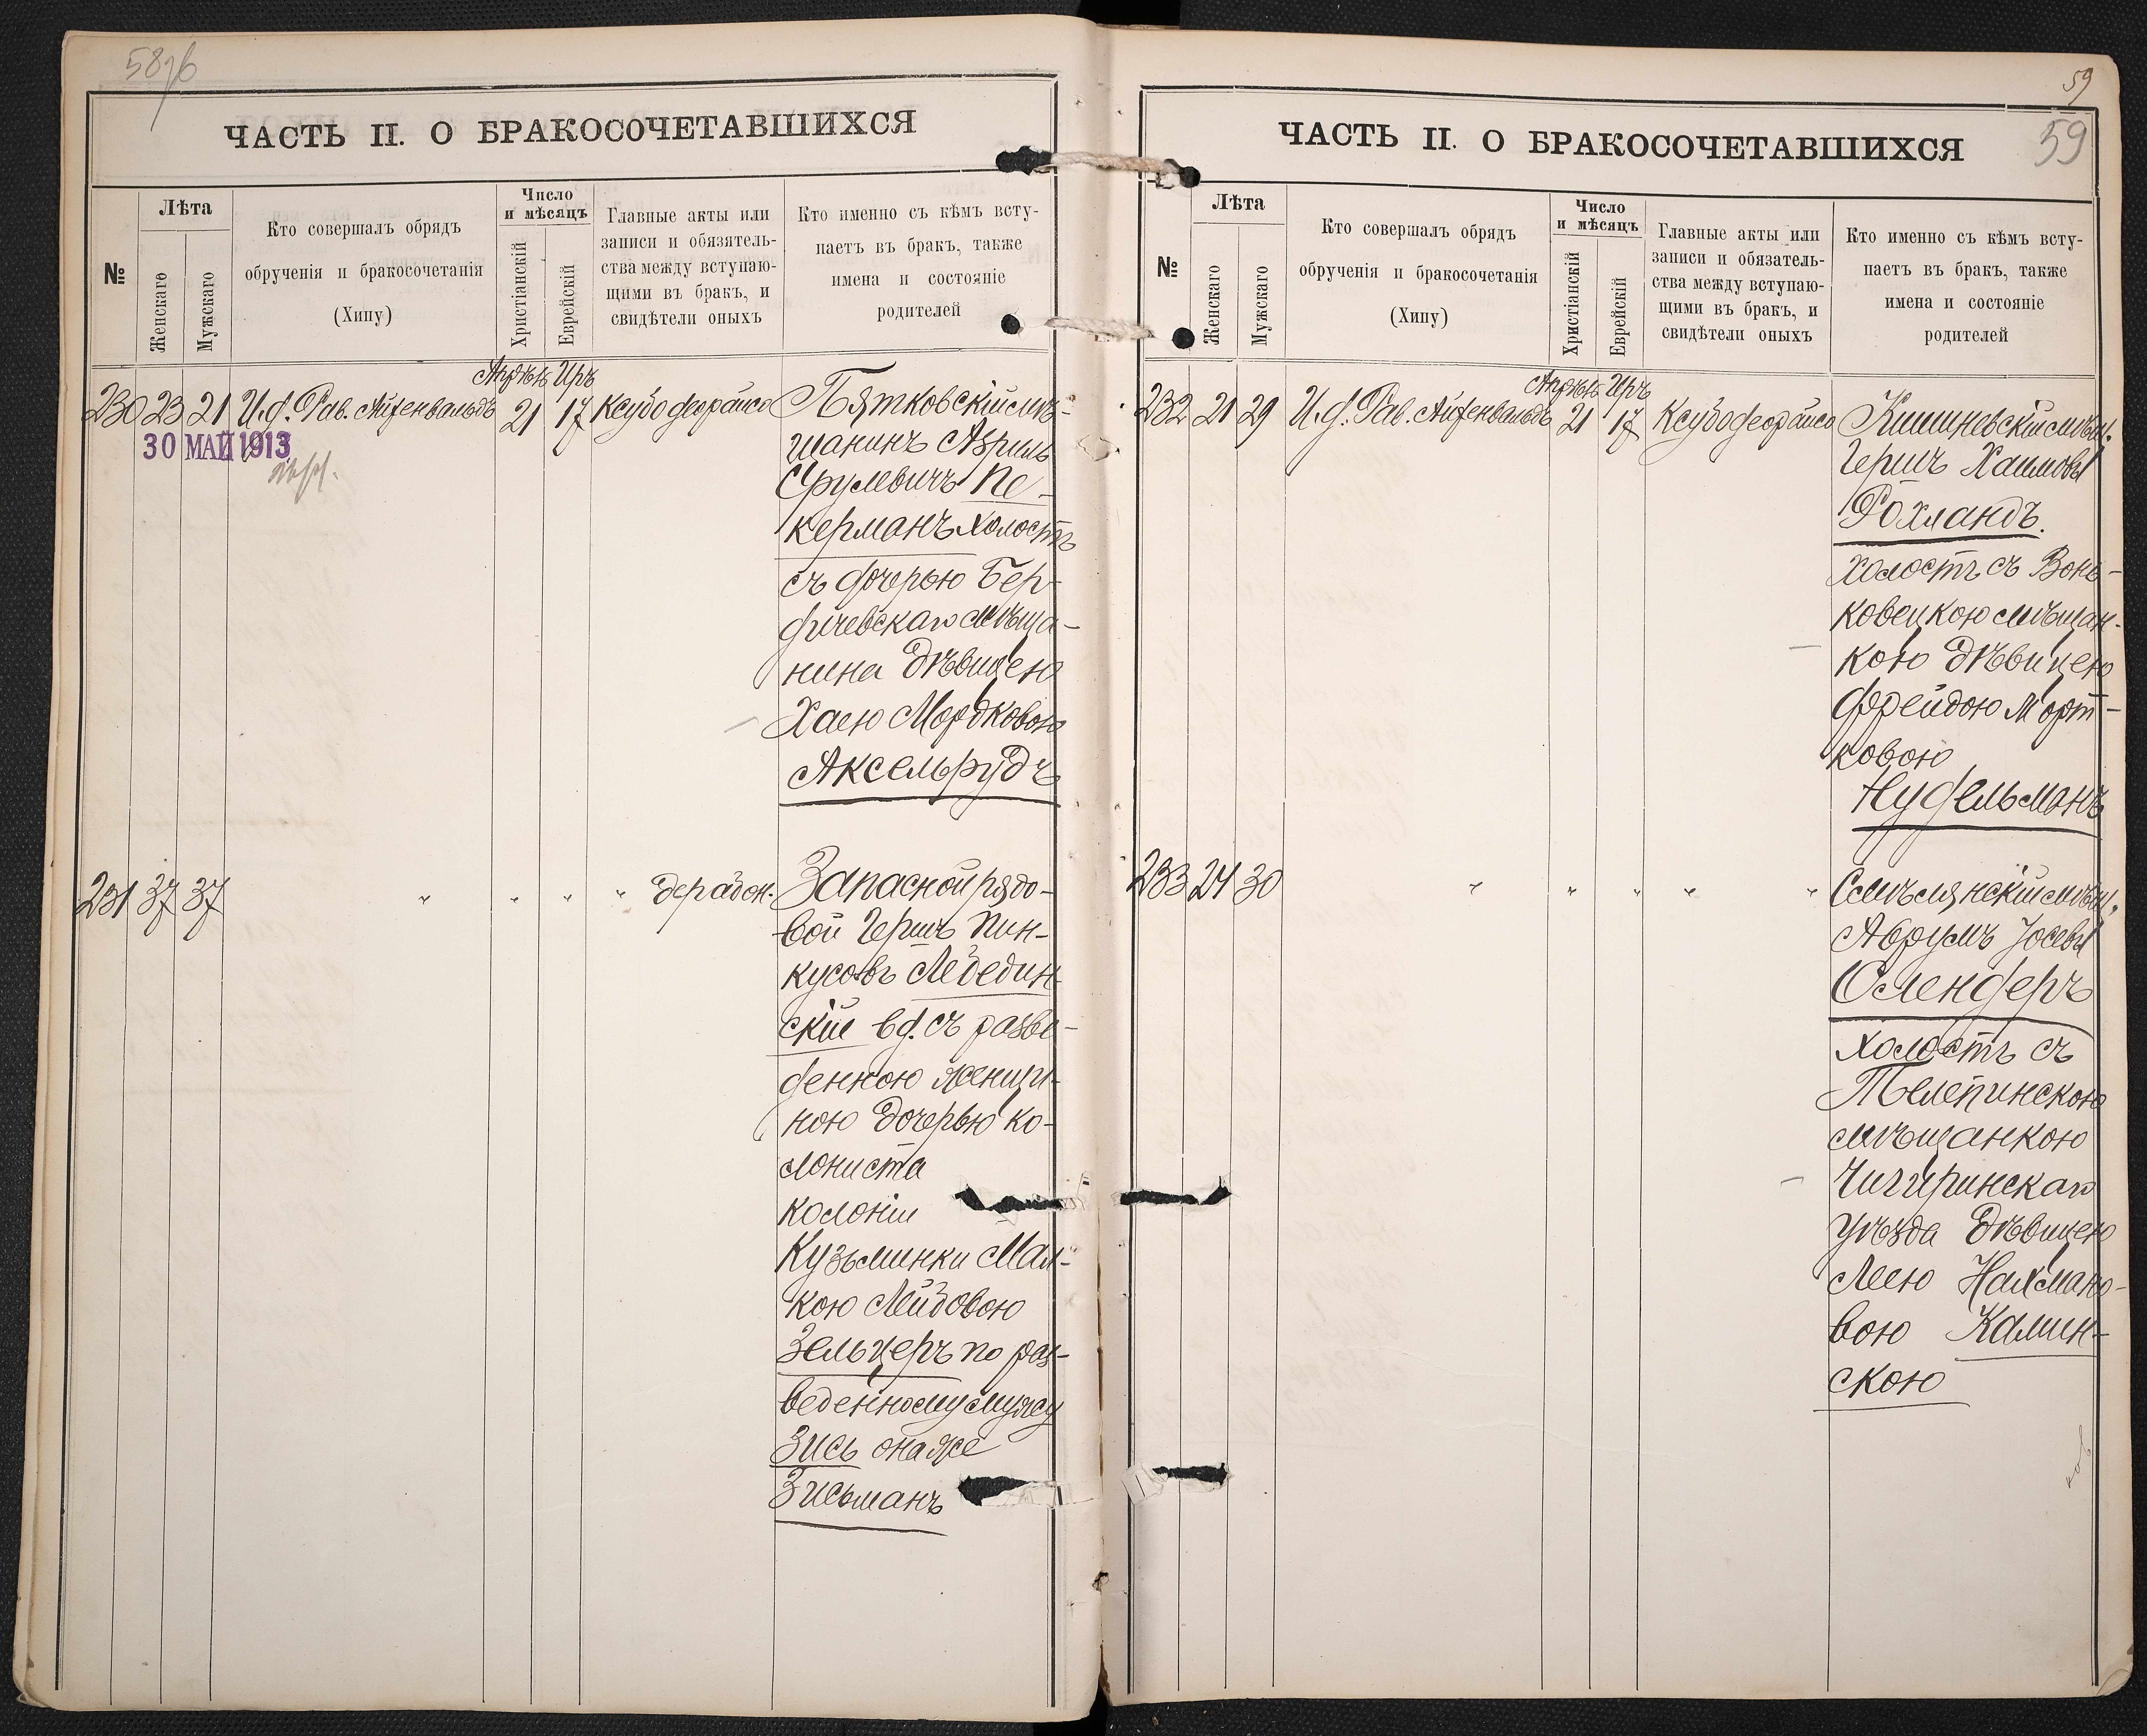 58 об
ЧАСТЬ II. О БРАКОСОЧЕТАВШИХСЯ
№
Лѣта
Женскаго
Мужскаго
Кто совершалъ обрядъ
обрученія и бракосочетанія
(Хипу)
Число
и мѣсяцъ
Христіанскій
Еврейскій
Главные акты или
записи и обязатель-
ства между вступаю-
щими въ бракъ, и
свидѣтели оныхъ
Кто именно съ кѣмъ всту-
паетъ въ бракъ, также
имена и состояніе
родителей
Апрѣль Иръ
230 23 21 И.д. Рав. Айзенвальдъ 21 17 Ксубо деорайсо Пятковскій мѣ-
30 МАЙ 1913
щанинъ Азриль
Срулевичъ Пе-
керманъ холостъ
съ дочерью Бер-
дичевскаго мѣща-
нина дѣвицею
Хаею Мордковою
Аксельрудъ
231 37 37 " " " " дерабон. Запасной рядо-
вой Гершъ Пин-
кусовъ Лебедин-
скій вд. съ разве-
денною женщи-
ною дочерью ко-
лониста
колоніи
Кузьминки Мал-
кою Лейбовою
Зельцеръ по раз-
веденному мужу
Зись она же
Зисьманъ
59
59
ЧАСТЬ II. О БРАКОСОЧЕТАВШИХСЯ
№
Лѣта
Женскаго
Мужскаго
Кто совершалъ обрядъ
обрученія и бракосочетанія
(Хипу)
Число
и мѣсяцъ
Христіанскій
Еврейскій
Главные акты или
записи и обязатель-
ства между вступаю-
щими въ бракъ, и
свидѣтели оныхъ
Кто именно съ кѣмъ всту-
паетъ въ бракъ, также
имена и состояніе
родителей
Апрѣль Иръ
232 21 29 И.д. Рав. Айзенвальдъ 21 17 Ксубо деорайсо Кишиневскій мѣщ.
Гершъ Хаимовъ
Рохландъ.
холостъ съ Вонь-
ковецкою мѣщан-
кою дѣвицею
Фрейдою Морт-
ковою
Нудельманъ
233 24 30 " " " " " Смѣлянскій мѣщ.
Абрумъ Іосевъ
Слендеръ
холостъ съ
Телепинскою
мѣщанкою
Чигиринскаго
уѣзда дѣвицею
Леею Нахмано-
вою Камин-
скою